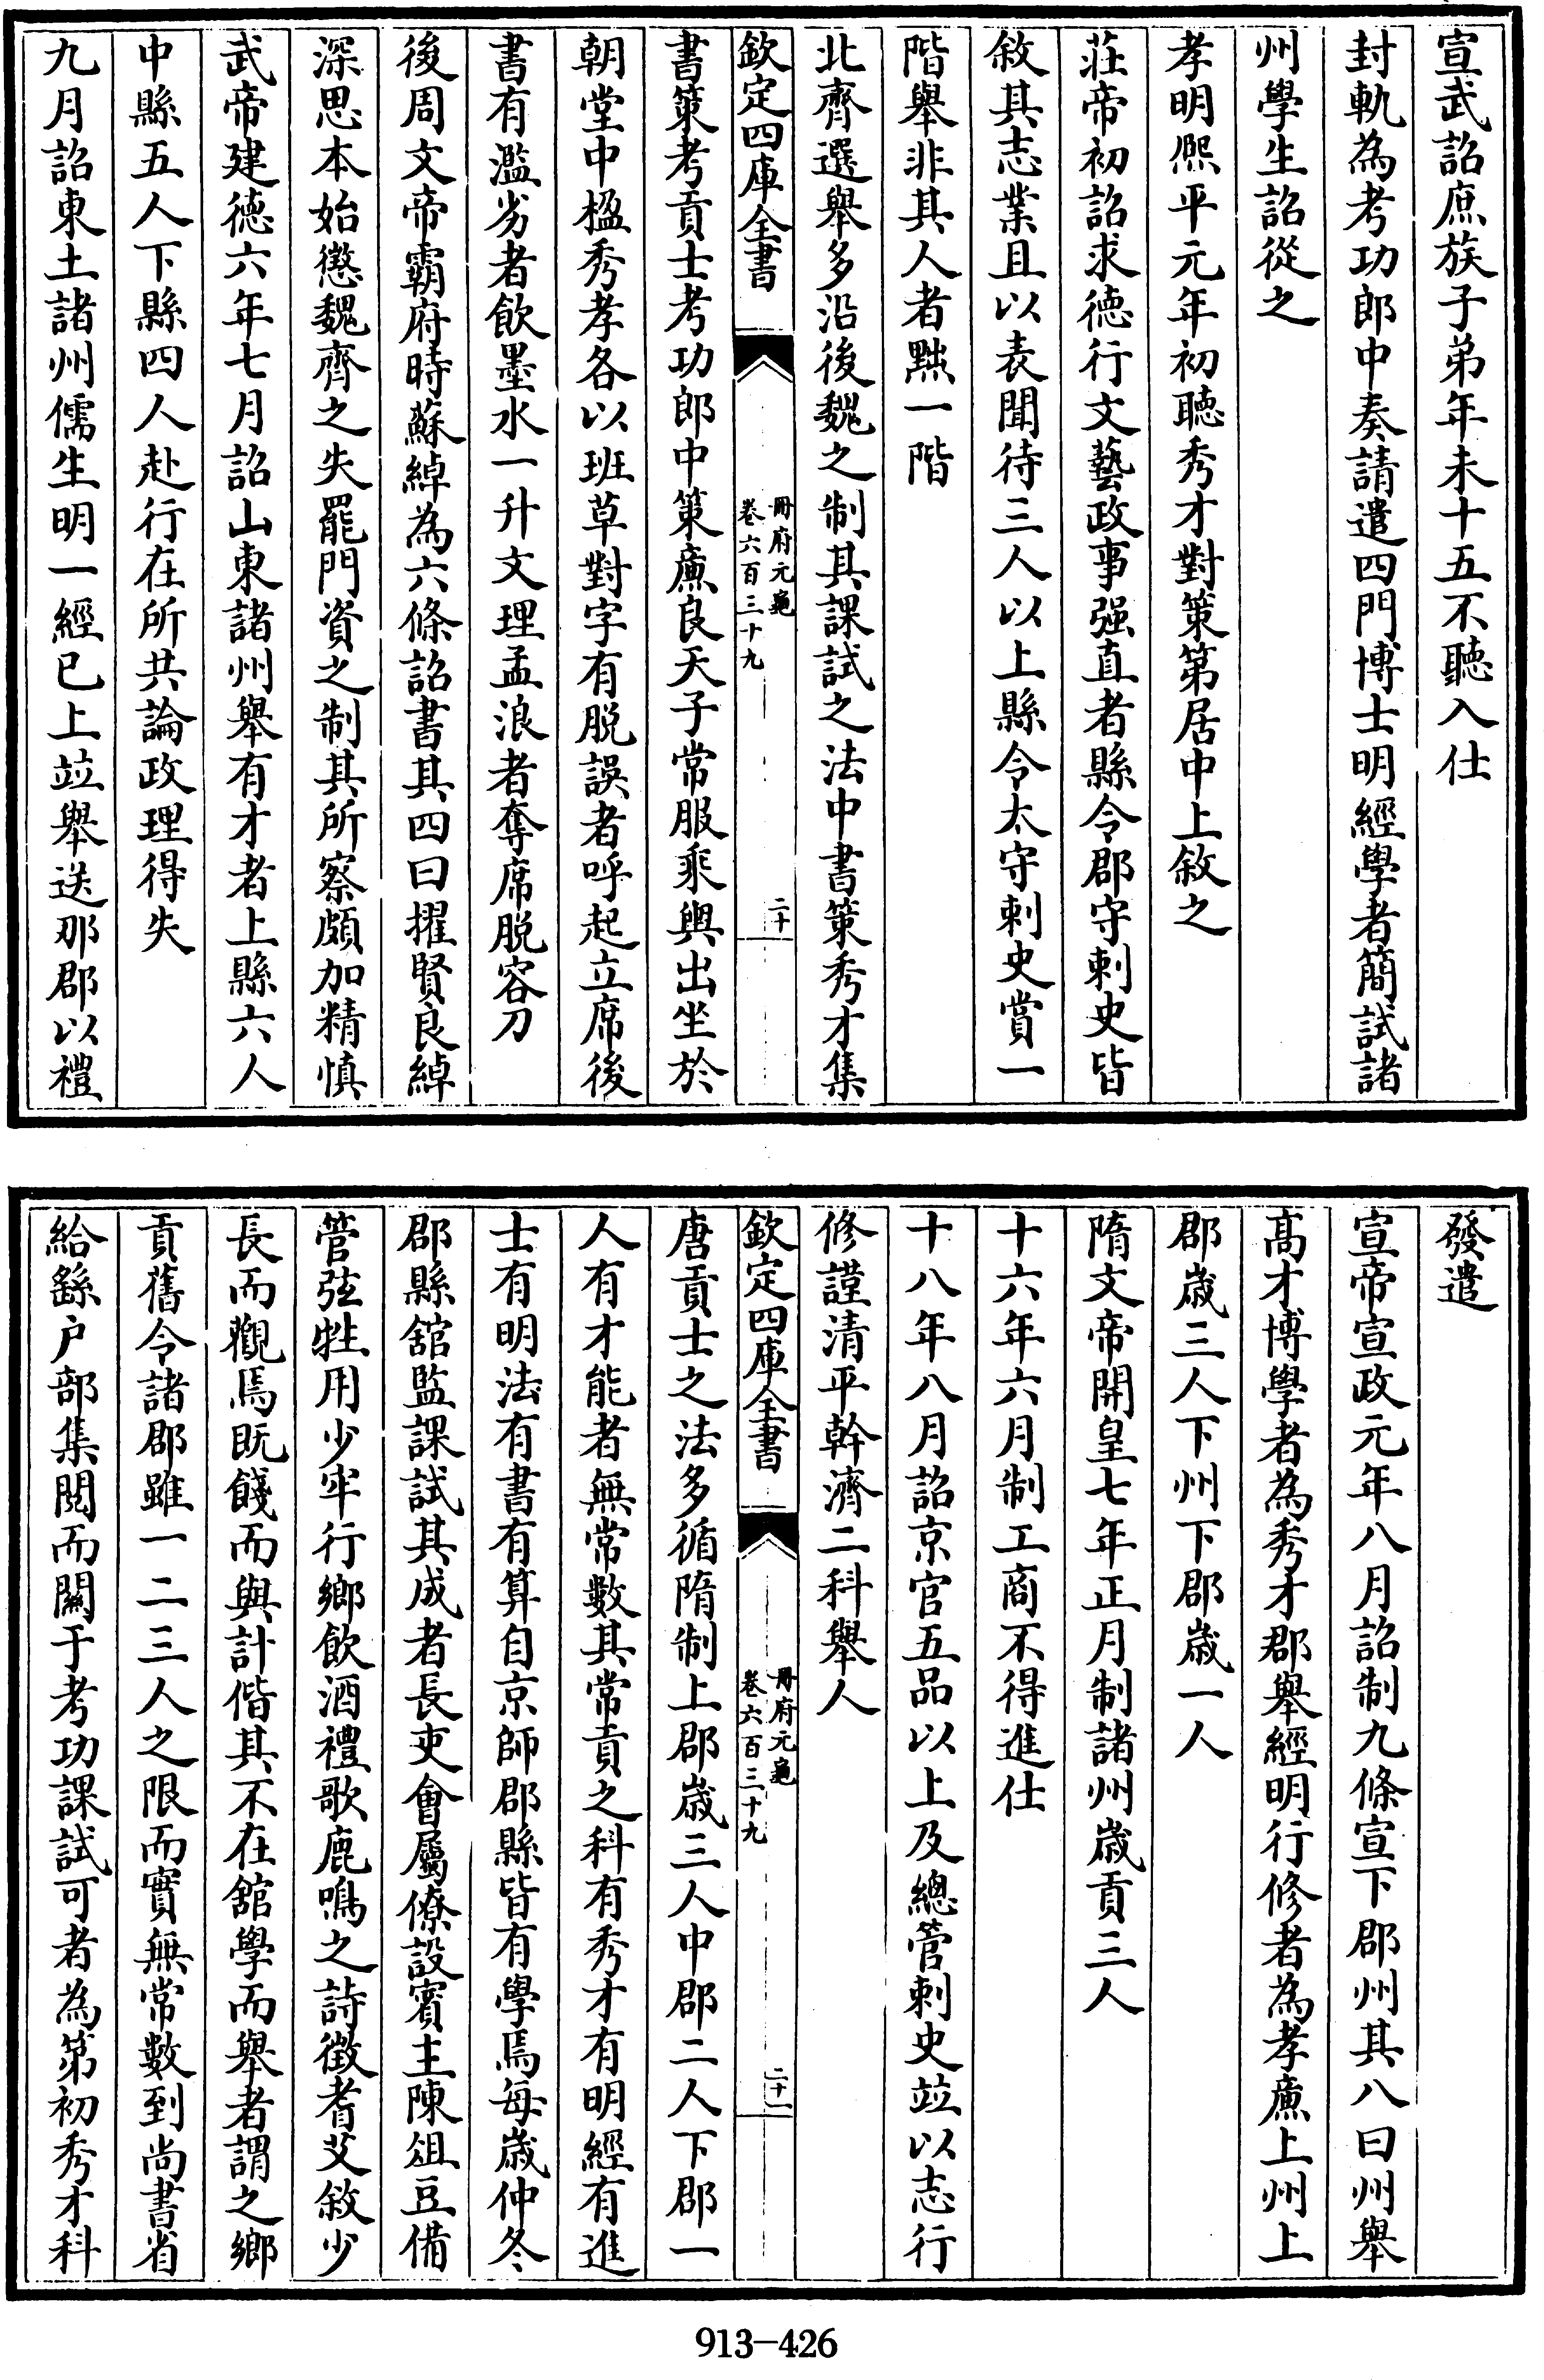 宣武詔庶族子弟年未十五不聽入仕
封軌為考功郎中奏請遣四門博士明經學者簡試諸
州學生詔從之
孝明熈平元年初聴秀才對策第居中上敘之
莊帝初詔求徳行文藝政事强直者縣令郡守刺史皆
敘其志業且以表聞待三人以上縣令太守刺史賞一
階舉非其人者黜一階
北齊選舉多沿後魏之制其課試之法中書策秀才集
欽定四庫全書
冊府元龜
卷六百三十九
二十
書策考貢士考功郎中策亷良天子常服乘輿出坐於
朝堂中楹秀孝各以班草對字有脱誤者呼起立席後
書有濫劣者飲墨水一升文理孟浪者奪席脱容刀
後周文帝霸府時蘇綽為六條詔書其四曰擢賢良綽
深思本始懲魏齊之失罷門資之制其所察頗加精慎
武帝建徳六年七月詔山東諸州舉有才者上縣六人
中縣五人下縣四人赴行在所共論政理得失
九月詔東土諸州儒生明一經已上竝舉送那郡以禮
發遣
宣帝宣政元年八月詔制九條宣下郡州其八曰州舉
髙才博學者為秀才郡舉經明行修者為孝亷上州上
郡歳三人下州下郡歳一人
隋文帝開皇七年正月制諸州歳貢三人
十六年六月制工商不得進仕
十八年八月詔京官五品以上及總管刺史竝以志行
修謹清平幹濟二科舉人
欽定四庫全書
冊府元龜
卷六百三十九
二十一
唐貢士之法多循隋制上郡歳三人中郡二人下郡一
人有才能者無常數其常貢之科有秀才有明經有進
士有明法有書有算自京師郡縣皆有學焉每歳仲冬
郡縣舘監課試其成者長吏會屬僚設賓主陳俎豆備
管弦牲用少牢行鄉飲酒禮歌鹿鳴之詩徴耆艾敘少
長而觀焉既餞而與計偕其不在舘學而舉者謂之鄉
貢舊令諸郡雖一二三人之限而實無常數到尚書省
給繇户部集閲而關于考功課試可者為第初秀才科
913-426